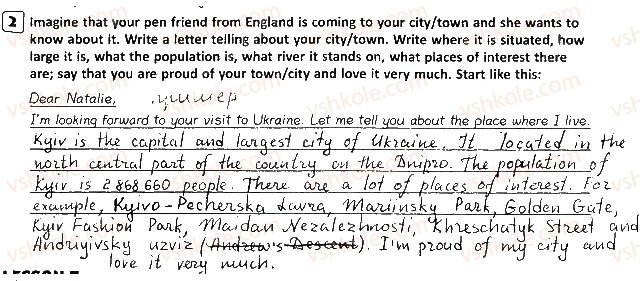 2 Imagine that your pen friend from England is coming to your city/town and she wants to
know about it. Write a letter telling about your city/town. Write where it is situated, how
large it is, what the population is, what river it stands on, what places of interest there
are; say that you are proud of your town/city and love it very much. Start like this:
Dear Natalie,
I'm looking forward to your visit to Ukraine. Let me tell you about the place where I live.
Kyiv is the capital and largest city of Ukraine. It located in the
north central part of the country on the Dnipro. The population of
Kyiv is 2 868 660 people. There are a lot of places of interest. For
example, Kyivo-Pecherska Lavra, Mariinsky Park, Golden Gate,
Kyiv Fashion Park, Maidan Nezalezhnosti, Khreschatyk Street and
Andriyivsky uzviz (Andrew's Descent). I'm proud of my city and
love it very much.